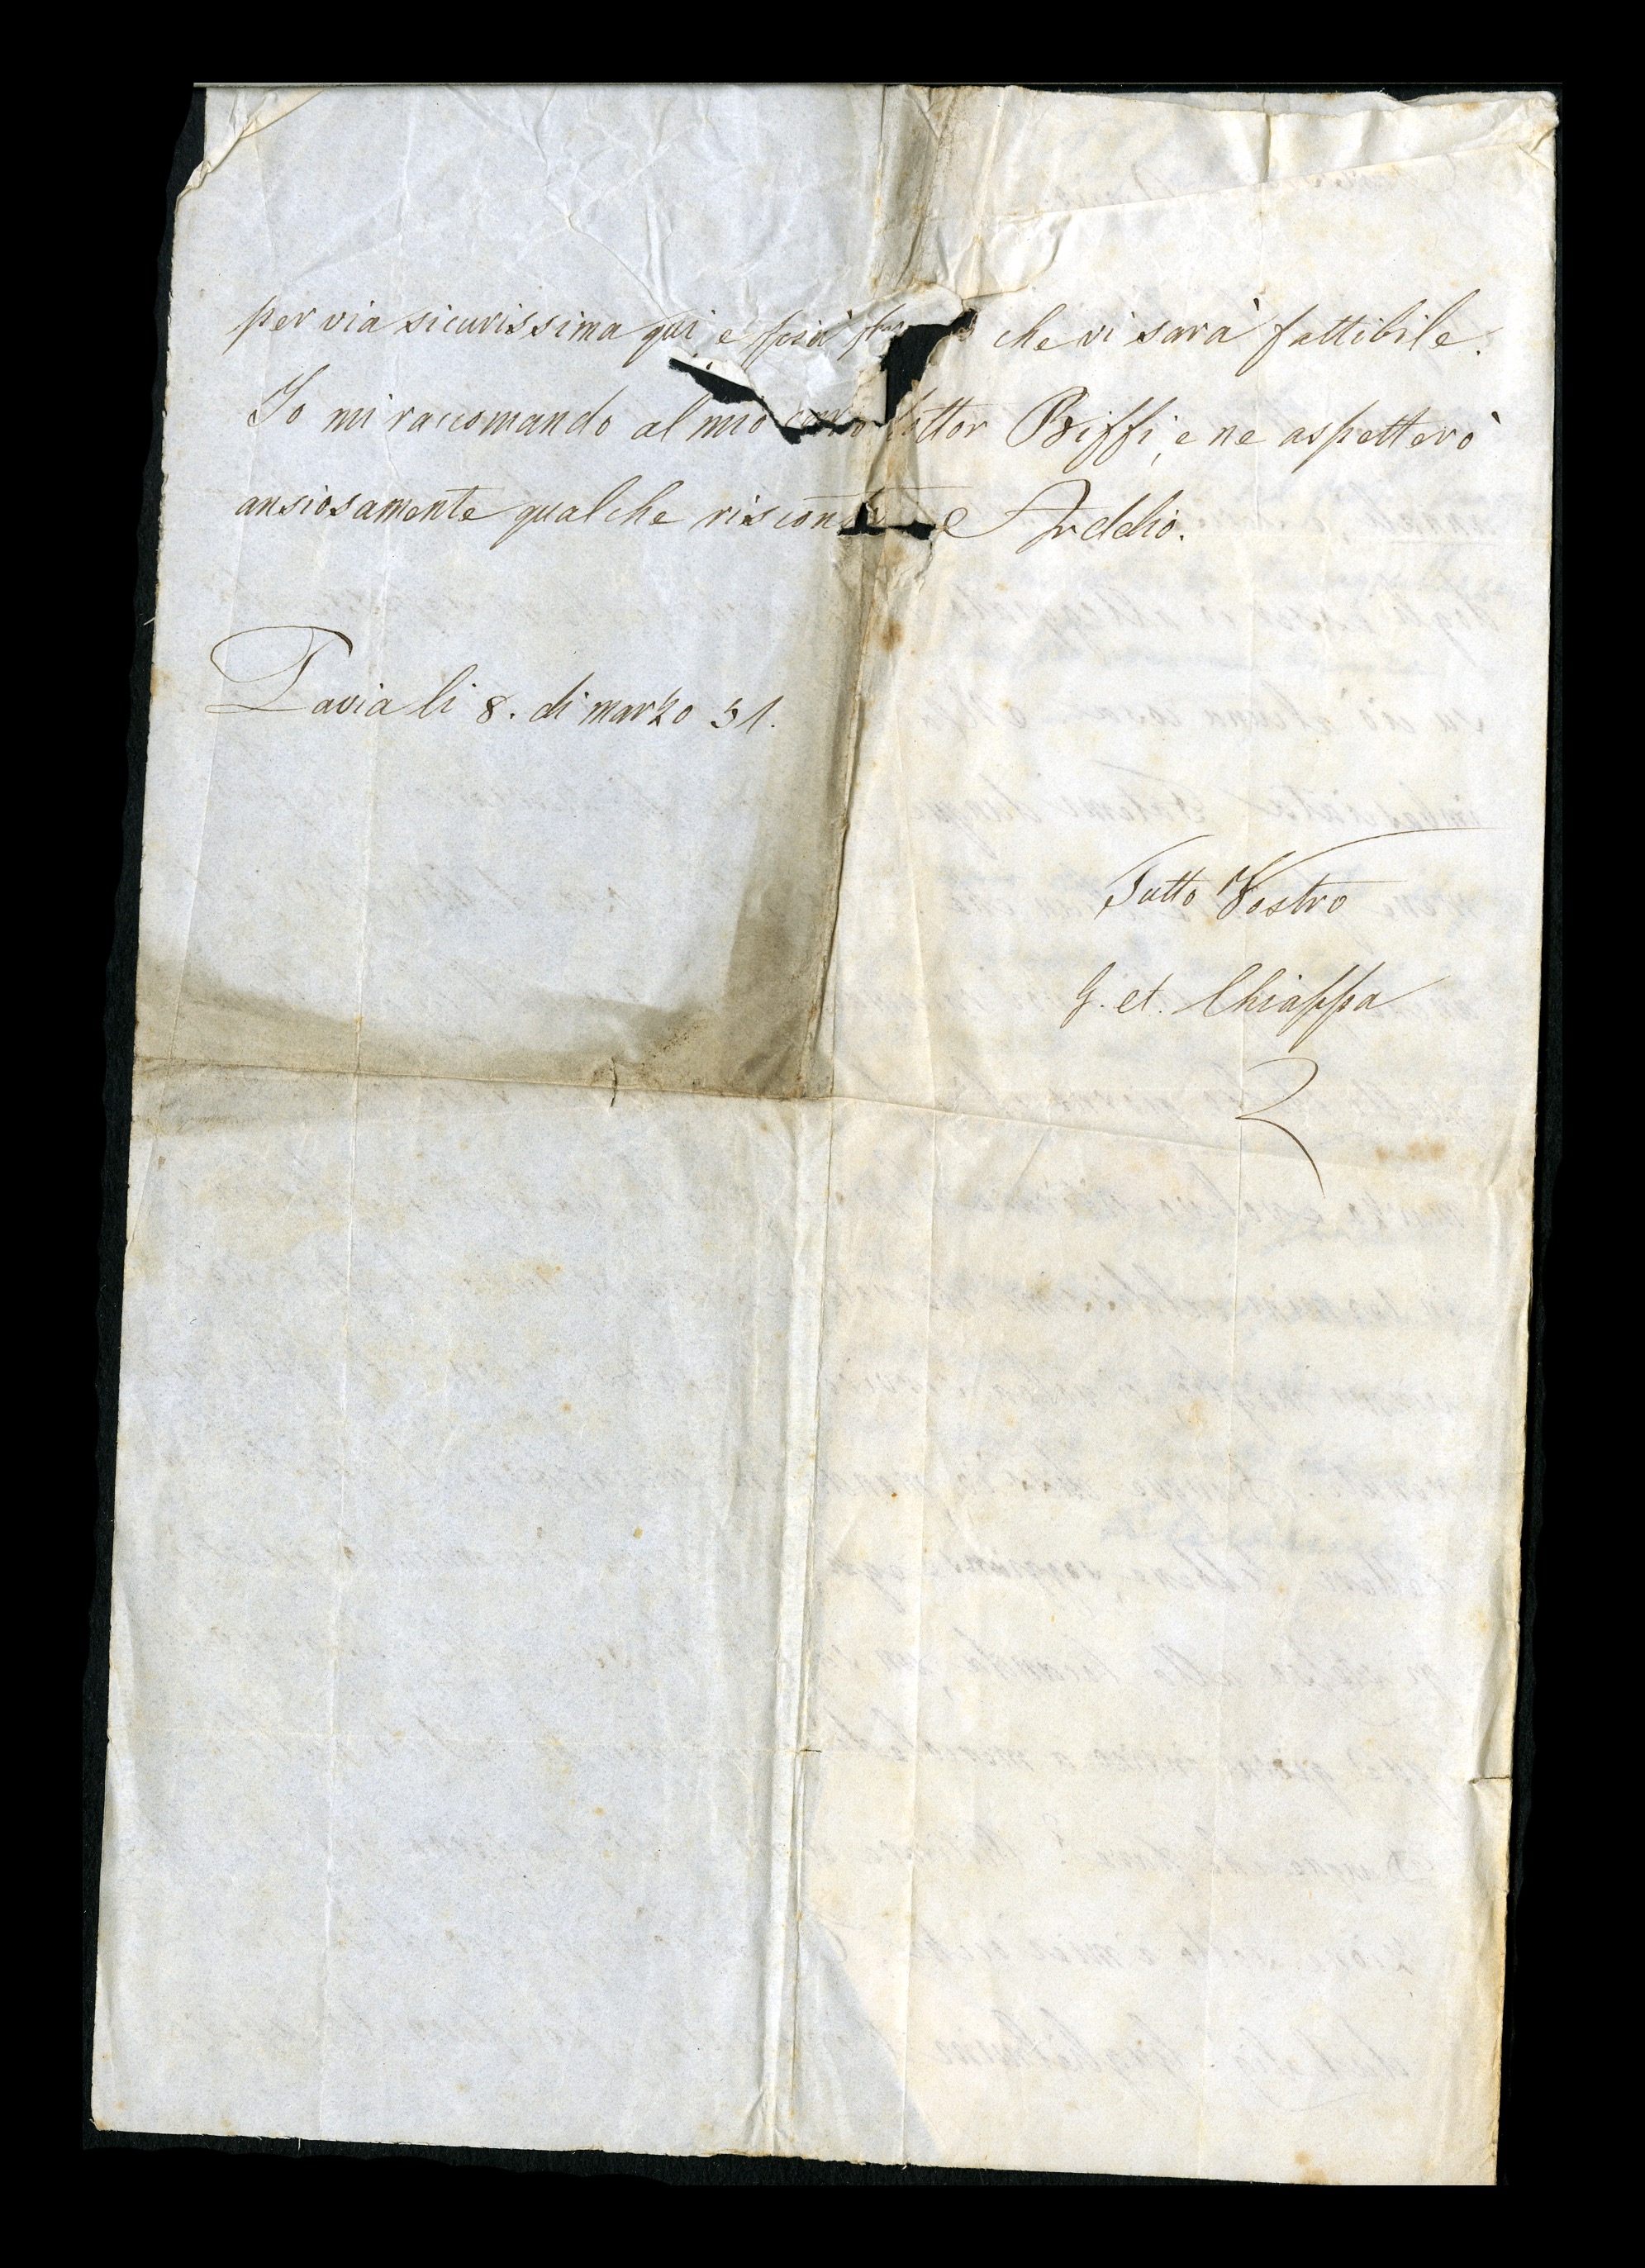 per via sicurissima qui, e più che vi sarà fattibile.
Io mi raccomando al mio caro dottor Biffi, e ne aspetterò
ansiosamente qualche riscont e Addio.
Pavia li 8. di marzo 51.
Tutto Vostro
G. et. Chiappa